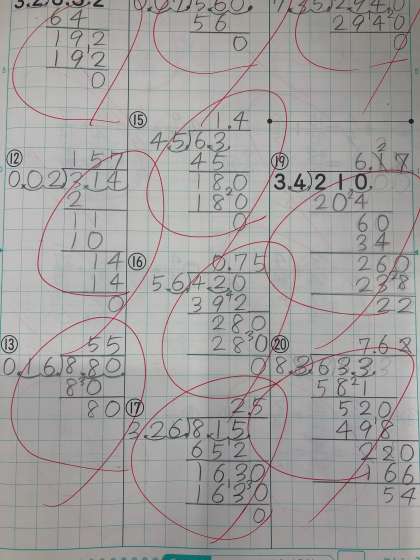 3.2)6.5.2
64
192
192
0
0.07)5.60.
56
0
7.35)2.94.0
2940
0
⑫
157
0.02)3.14
2
11
10
14
14
0
⑬
55
0.16)8.80.
80
80
⑮
1.4
45)63
45
180
180
0
⑯
0.75
5.6)4.20
392
280
280
0
⑰
2.5
3.26)8.15
652
1630
1630
0
⑲
6.17
3.4)21.0.00
204
60
34
260
238
22
⑳
7.63
8.3)63.3
581
520
498
220
166
54